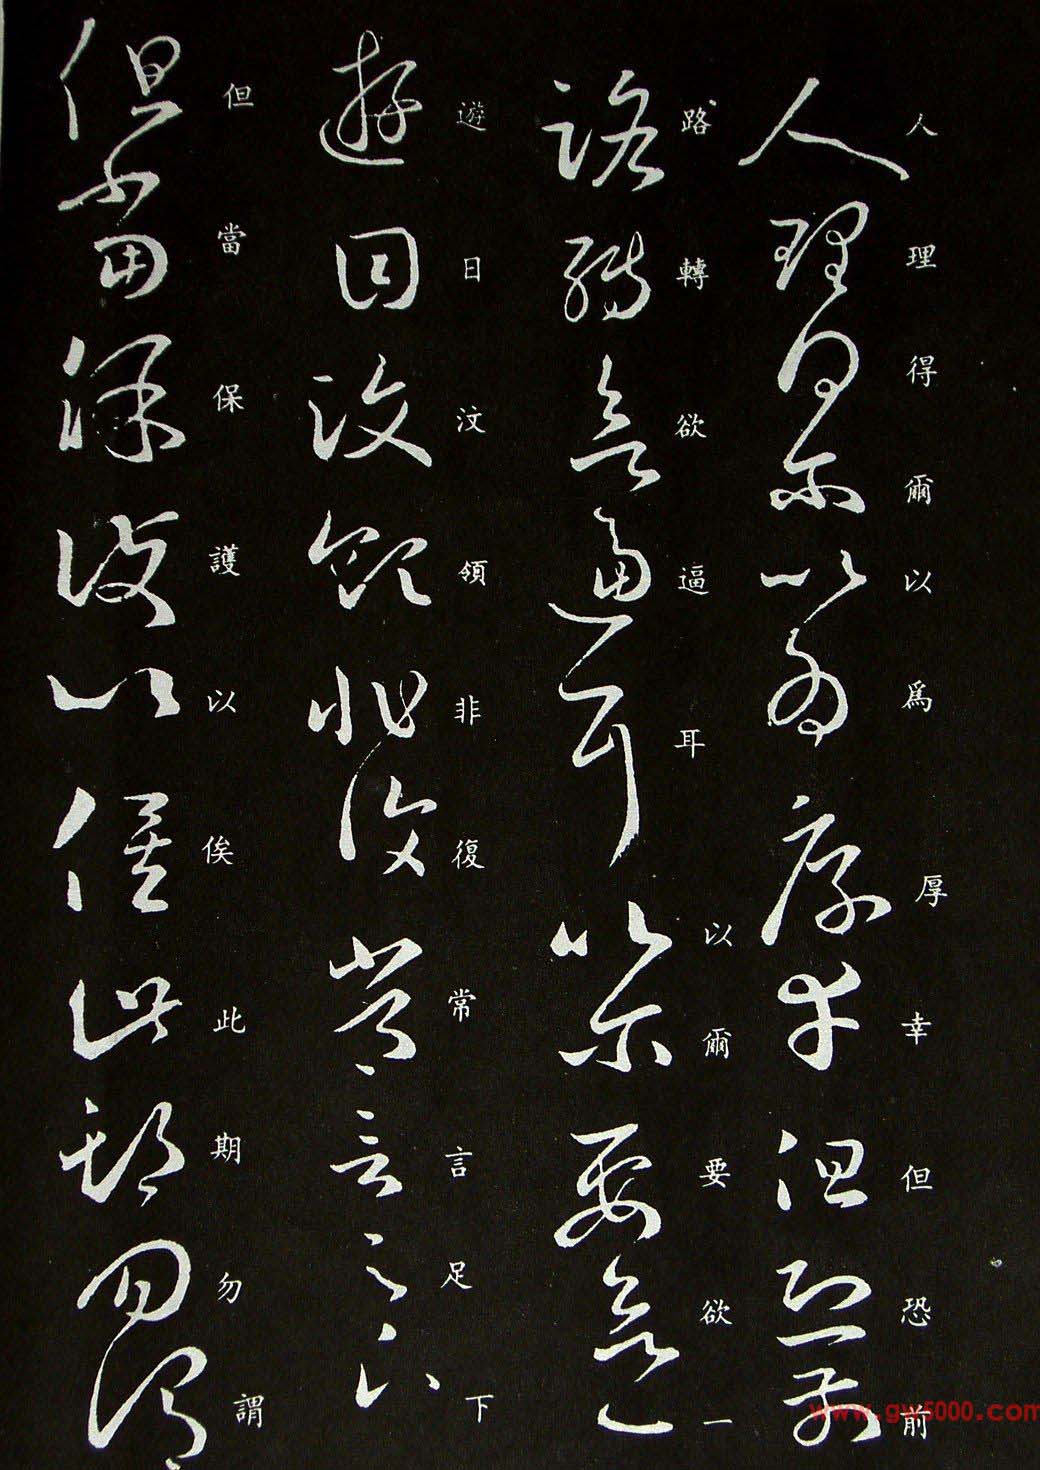 人理得爾以爲厚幸但恐前
路轉欲逼耳以爾要欲一
遊日汶領非復常言足下
但當保護以俟此期勿謂
www.gw5000.com